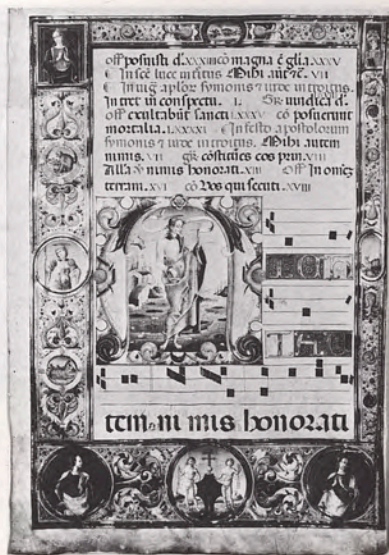 off posuisti d. xxxiii cō magna ē gl̄ia. xxxv
In scē luce introitus Mihi aut ē. vii
In uig aplōr symonis ⁊ iude introitus.
Intret in conspectu. i. Gr̄ uindica d.
off exultabūt sancti. lxxxv cō posuerunt
mortalia. lxxxxi In festo apostolorum
symonis ⁊ iude introitus. Mihi autem
nimis. vii gr̄ cōstitues eos prin. viii
Alla ℣ nimis honorati. xiii Off In omnē
terram. xvi cō Vos qui secuti. xviii
tem. ni mis honorati